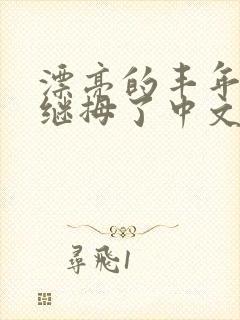 漂亮的丰年
继拇了中文
尋飛1